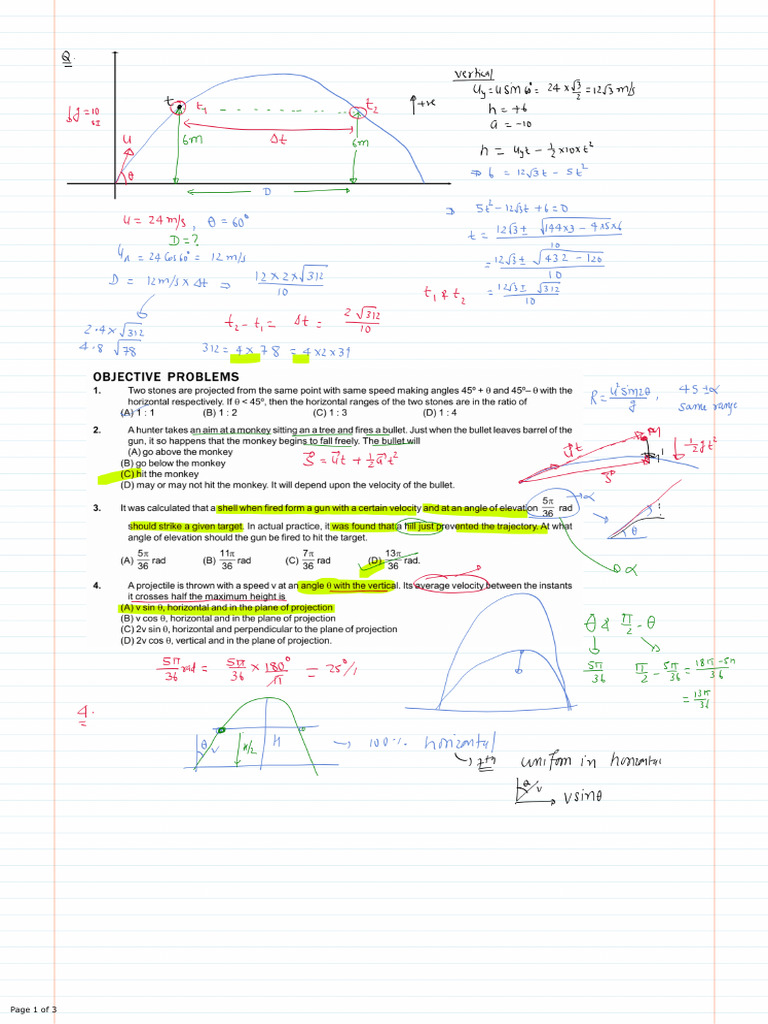 Q.
vertical
u_y = u sin 60° = 24 × √3/2 = 12√3 m/s
h = +6
a = -10
h = u_y t - 1/2 × 10 × t²
⇒ 6 = 12√3 t - 5t²
⇒ 5t² - 12√3 t + 6 = 0
t = (12√3 ± √(144×3 - 4×5×6))/10
= (12√3 ± √(432 - 120))/10
t₁ & t₂ = (12√3 ± √312)/10
t₁
t₂
↑ +ve
u
θ
6m
Δt
6m
D
u = 24 m/s, θ = 60°
D = ?
= 24 Cos 60° = 12 m/s
D = 12 m/s × Δt ⇒ (12 × 2 × √312)/10
t₂ - t₁ = Δt = 2√312/10
2.4 × √312
4.8 √78
312 = 4 × 78 = 4×2×39
OBJECTIVE PROBLEMS
1. Two stones are projected from the same point with same speed making angles 45º + θ and 45º– θ with the
horizontal respectively. If θ < 45º, then the horizontal ranges of the two stones are in the ratio of
(A) 1 : 1 (B) 1 : 2 (C) 1 : 3 (D) 1 : 4
R = u² sin 2θ/g , 45 ± α
same range
2. A hunter takes an aim at a monkey sitting an a tree and fires a bullet. Just when the bullet leaves barrel of the
gun, it so happens that the monkey begins to fall freely. The bullet will
(A) go above the monkey
(B) go below the monkey
(C) hit the monkey
(D) may or may not hit the monkey. It will depend upon the velocity of the bullet.
= ut + 1/2 at²
ut
1/2 gt²
3. It was calculated that a shell when fired form a gun with a certain velocity and at an angle of elevation 5π/36 rad
should strike a given target. In actual practice, it was found that a hill just prevented the trajectory. At what
angle of elevation should the gun be fired to hit the target.
(A) 5π/36 rad (B) 11π/36 rad (C) 7π/36 rad (D) 13π/36 rad.
→ α
θ
α
4. A projectile is thrown with a speed v at an angle θ with the vertical. Its average velocity between the instants
it crosses half the maximum height is
(A) v sin θ, horizontal and in the plane of projection
(B) v cos θ, horizontal and in the plane of projection
(C) 2v sin θ, horizontal and perpendicular to the plane of projection
(D) 2v cos θ, vertical and in the plane of projection.
θ & π/2 - θ
5π/36 π/2 - 5π/36 = (18π - 5π)/36
= 13π/36
5π/36 rad = 5π/36 × 180°/π = 25°
4.
θ
v
H/2
H
→ 100% horizontal
uniform in horizontal
v
v sinθ
Page 1 of 3